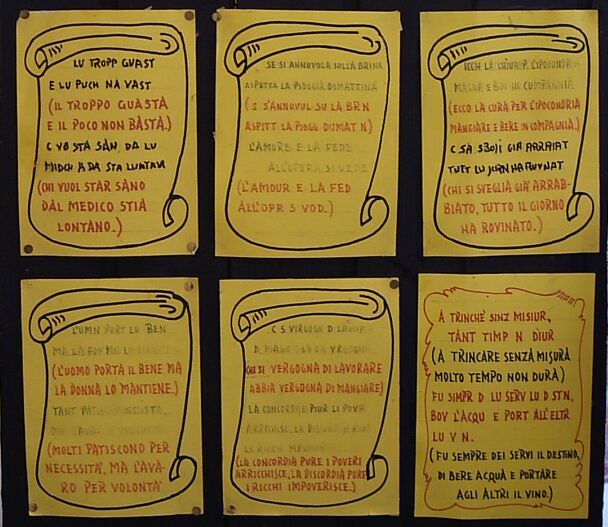 LU TROPP GUAST
E LU PUCH NA VAST
(IL TROPPO GUASTA
E IL POCO NON BASTA.)
C VO STA SAN, DA LU
MIDCH A DA STA LUNTAN
(CHI VUOL STAR SANO
DAL MEDICO STIA
LONTANO.)
SE SI ANNUVOLA SULLA BRINA
ASPETTA LA PIOGGIA DOMATTINA
(S S'ANNUVUL SU LA BRN
ASPITT LA PIOGG DUMAT N)
L'AMORE E LA FEDE
ALL'OPERA SI VEDE
(L'AMOUR E LA FED
ALL'OPR S VOD.)
ECCH LA CHIUR P L'IPOCONDRIA
MAGNA E BOV IN CUMPAGNIA
(ECCO LA CURA PER L'IPOCONDRIA
MANGIARE E BERE IN COMPAGNIA.)
C SA GIA ARRAIAT
TUTT LU JURN HA RUVNAT
(CHI SI SVEGLIA GIA' ARRAB-
BIATO, TUTTO IL GIORNO
HA ROVINATO.)
L'UMN PORT LU BEN
MA LA LU
(L'UOMO PORTA IL BENE MA
LA DONNA LO MANTIENE.)
TANT PATISC
(MOLTI PATISCONO PER
NECESSITA', MA L'AVA-
RO PER VOLONTA'
C S VIRGUGN D LAVUR
D
(CHI SI VERGOGNA DI LAVORARE
ABBIA VERGOGNA DI MANGIARE)
LA CONCORDIE PIUR LI POVR
ARRICCHISC, LA
LI RICCH
(LA CONCORDIA PURE I POVERI
ARRICCHISCE, LA DISCORDIA PURE
I RICCHI IMPOVERISCE.)
A TRINCHE' SINZ MISIUR,
TANT TIMP N DIUR
(A TRINCARE SENZA MISURA
MOLTO TEMPO NON DURA)
FU SIMPR D LU SERV LU DSTN,
BOV L'ACQU E PORT ALL'ELTR
LU V N.
(FU SEMPRE DEI SERVI IL DESTINO,
DI BERE ACQUA E PORTARE
AGLI ALTRI IL VINO.)